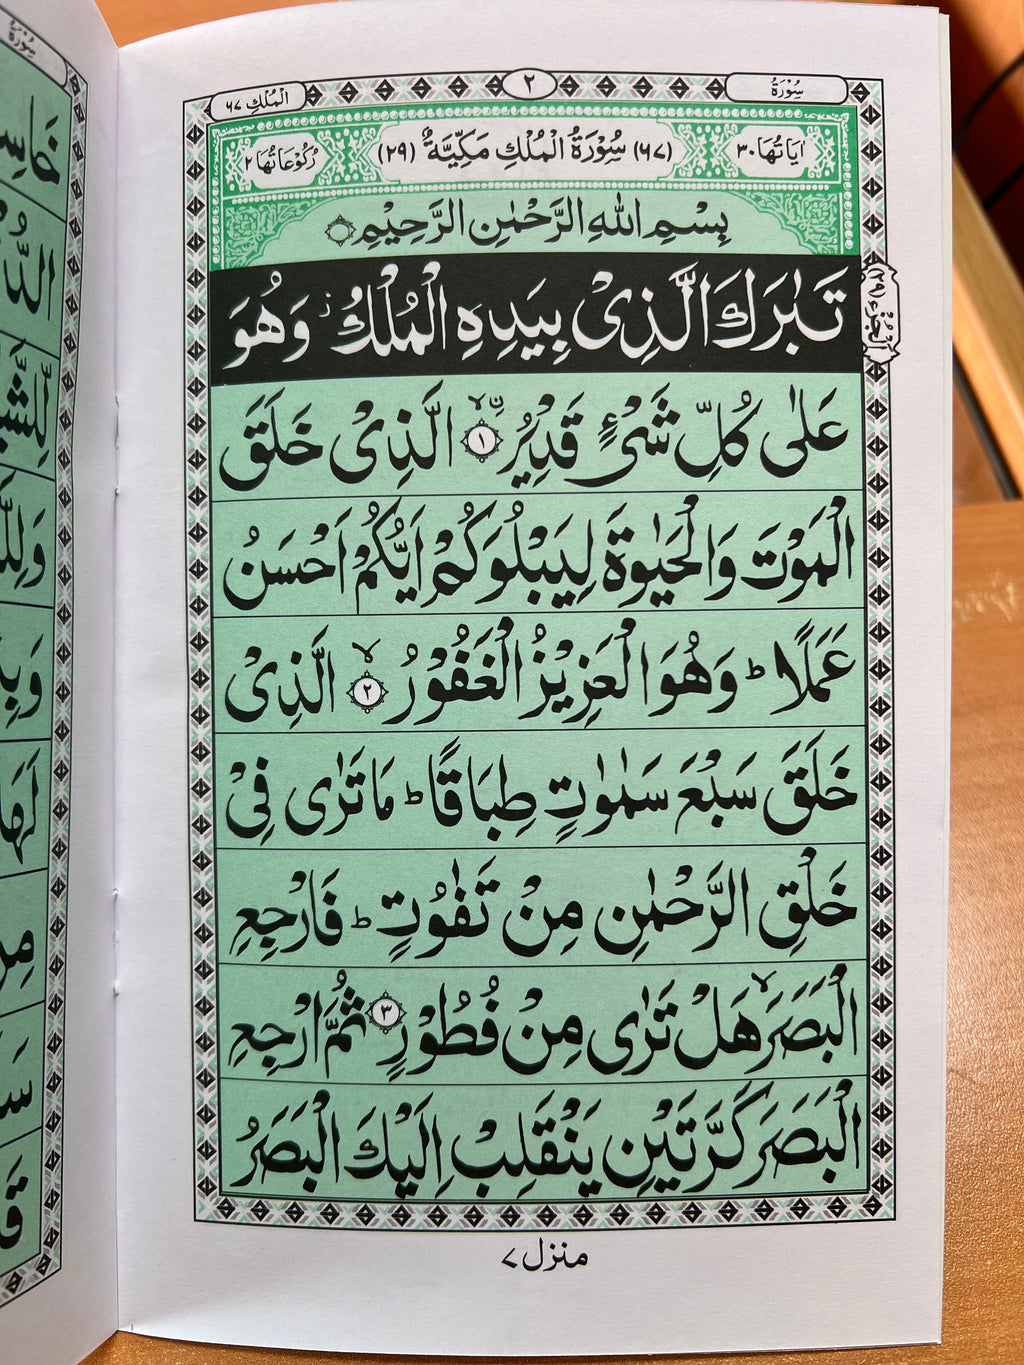 سُوْرَةُ
٢
الْمُلْكِ ٦٧
اٰيَاتُهَا ٣٠
(٦٧) سُوْرَةُ الْمُلْكِ مَكِّيَّةٌ (٢٩)
رُكُوْعَاتُهَا ٢
بِسْمِ اللهِ الرَّحْمٰنِ الرَّحِيْمِ
تَبٰرَكَ الَّذِىْ بِيَدِهِ الْمُلْكُ ز وَهُوَ
الْجُزْءُ (٢٩)
عَلٰى كُلِّ شَىْءٍ قَدِيْرُ ۨ ۙ ١ الَّذِىْ خَلَقَ
الْمَوْتَ وَالْحَيٰوةَ لِيَبْلُوَكُمْ اَيُّكُمْ اَحْسَنُ
عَمَلًا ؕ وَهُوَ الْعَزِيْزُ الْغَفُوْرُ ۙ ٢ الَّذِىْ
خَلَقَ سَبْعَ سَمٰوٰتٍ طِبَاقًا ؕ مَا تَرٰى فِىْ
خَلْقِ الرَّحْمٰنِ مِنْ تَفٰوُتٍ ؕ فَارْجِعِ
الْبَصَرَ ۙ هَلْ تَرٰى مِنْ فُطُوْرٍ ٣ ثُمَّ ارْجِعِ
الْبَصَرَ كَرَّتَيْنِ يَنْقَلِبْ اِلَيْكَ الْبَصَرُ
منزل ٧
سُوْرَةُ
خَاسِ
الدُّ
لِّلشَّ
وَلِلَّ
وَبِ
لَهَا
مِن
سَ